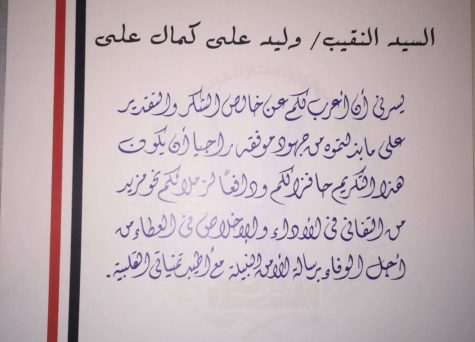 السيد النقيب/ وليد على كمال على
يسرنى أن أعرب لكم عن خالص الشكر والتقدير
على ما بذلتموه من جهود موفقه راجيا أن يكون
هذا التكريم حافزا لكم ودافعا لزملائكم نحو مزيد
من التفانى فى الأداء والإخلاص فى العطاء من
أجل الوفاء برسالة الأمن النبيلة مع أطيب تمنياتى القلبية .